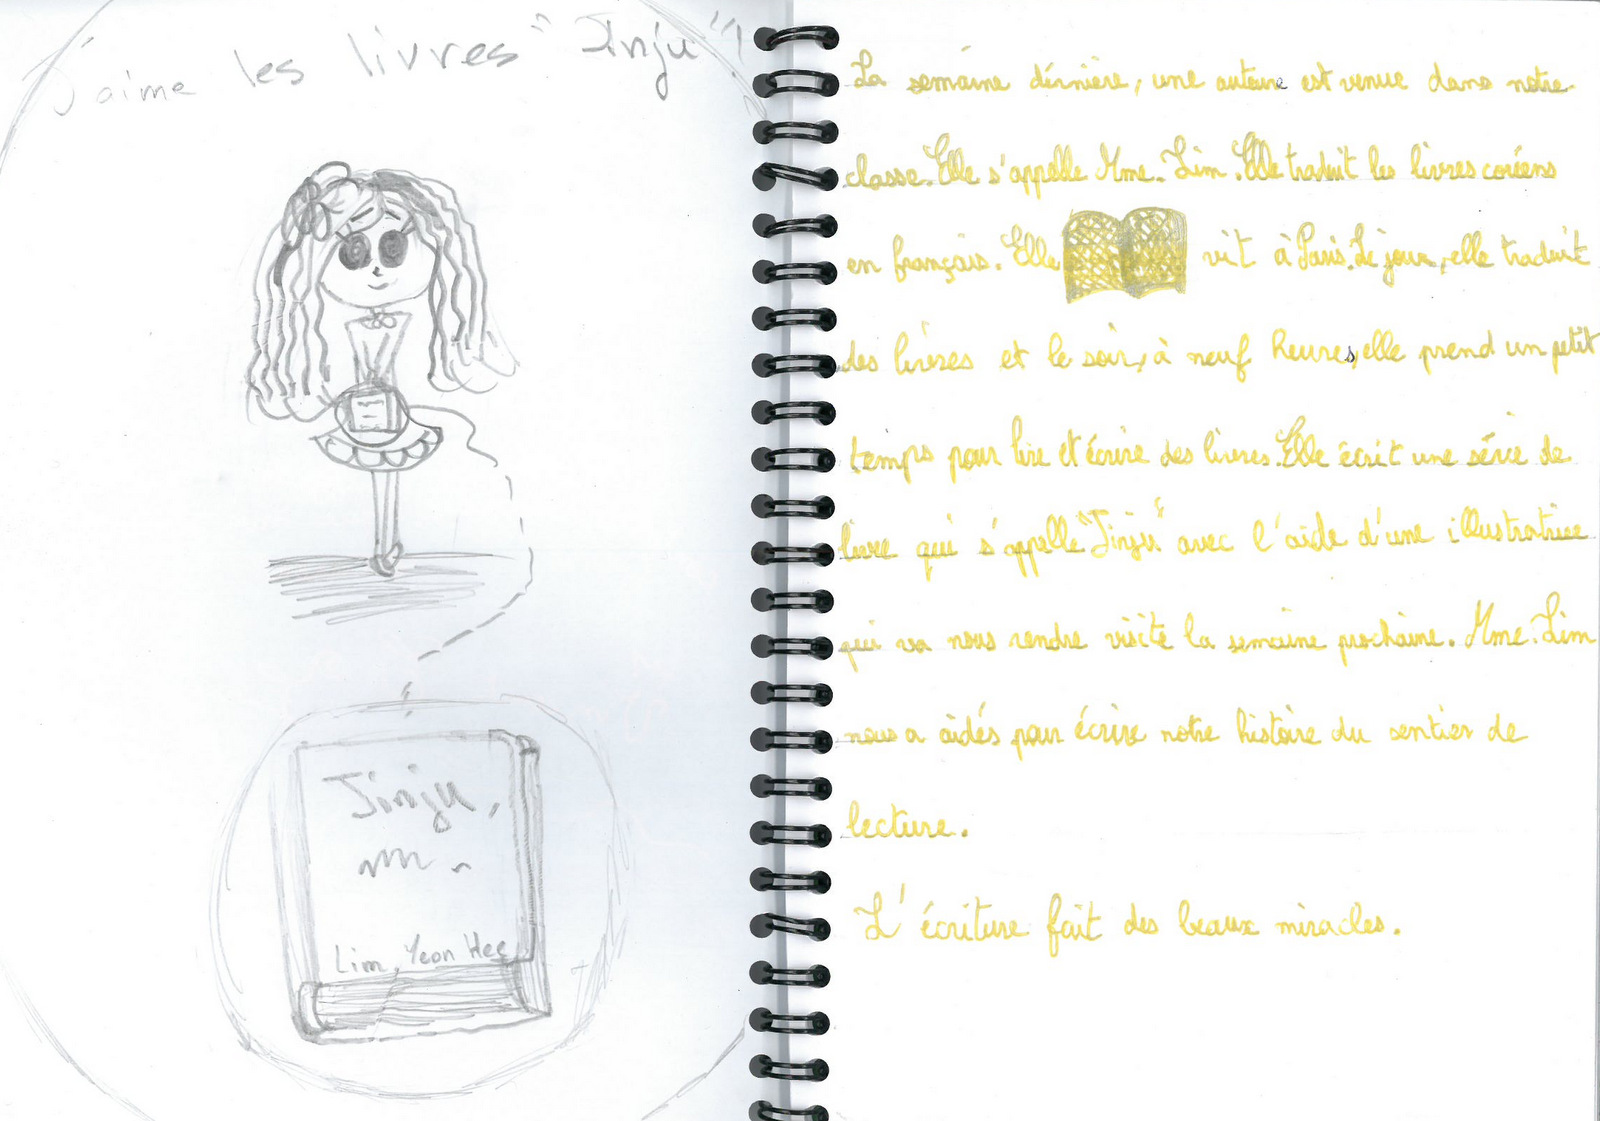 J'aime les livres "Jinju"!
Jinju,
Lim, Yeon Hee
La semaine dérnière, une auteure est venue dans notre
classe. Elle s'appelle Mme. Lim. Elle traduit les livres coréens
en français. Elle vit à Paris. Le jour, elle traduit
des livres et le soir, à neuf heures, elle prend un petit
temps pour lire et écrire des livres. Elle écrit une série de
livre qui s'appelle "Jinju" avec l'aide d'une illustratrice
qui va nous rendre visite la semaine prochaine. Mme. Lim
nous a aidés pour écrire notre histoire du sentier de
lecture.
L'écriture fait des beaux miracles.